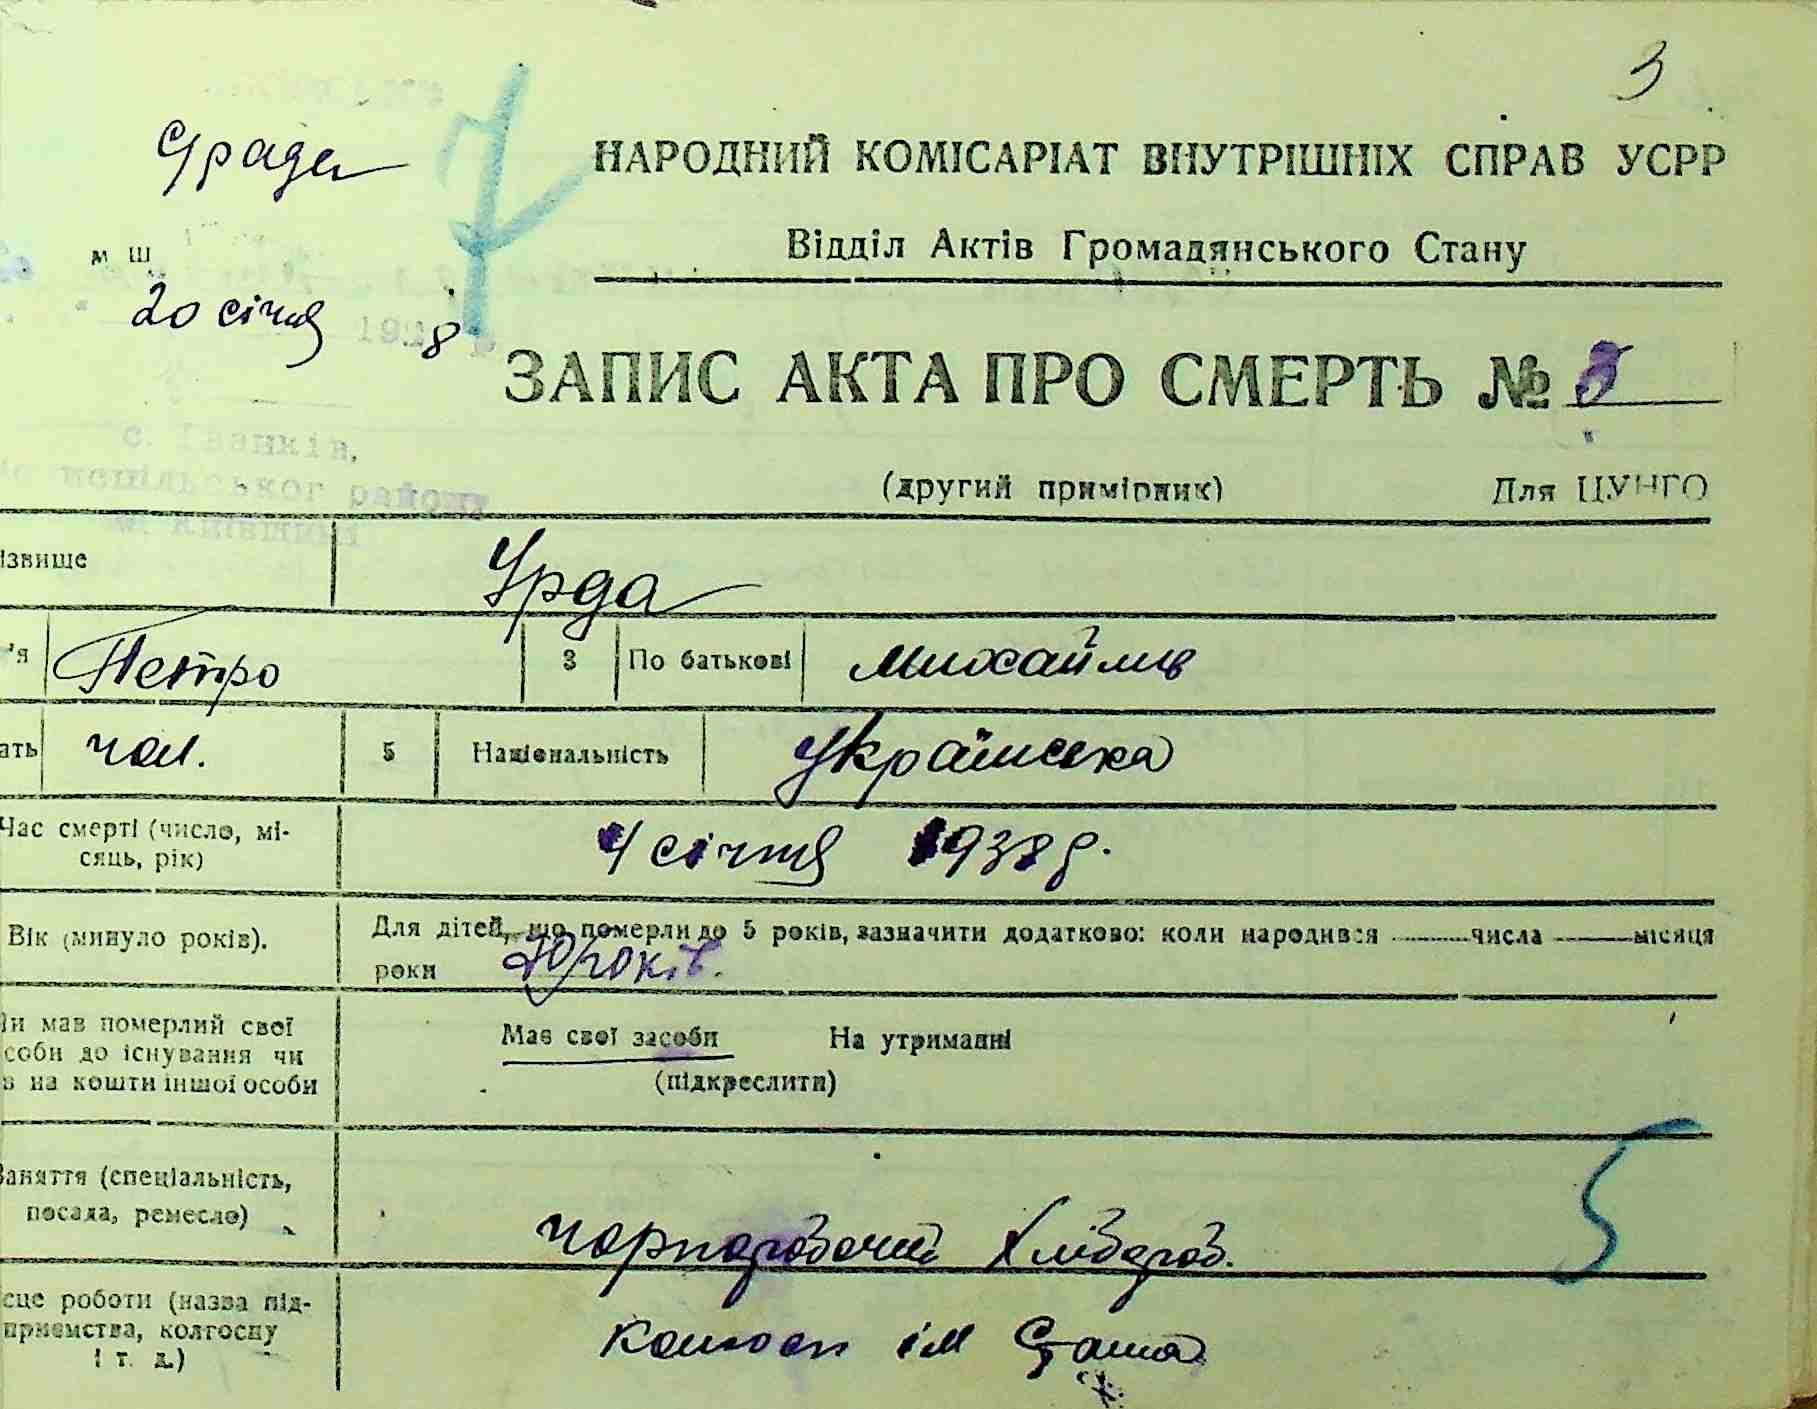 3
НАРОДНИЙ КОМІСАРІАТ ВНУТРІШНІХ СПРАВ УСРР
Відділ Актів Громадянського Стану
м ш
20 січня 1938
ЗАПИС АКТА ПРО СМЕРТЬ №
с. Іванків,
(другий примірник) Для ЦУНГО
ізвище Урда
'я Петро 3 По батькові Михайлів
ать чол. 5 Національність Українська
Час смерті (число, мі-
сяць, рік) 4 січня 1938 р.
Вік (минуло років). Для дітей, що померли до 5 років, зазначити додатково: коли народився числа місяця
роки 70 років.
Чи мав померлий свої
соби до існування чи
в на кошти іншої особи
Має свої засоби На утриманні
(підкреслити)
Заняття (спеціальність,
посада, ремесло) чорноробочий хлібороб.
5
сце роботи (назва під-
приємства, колгоспу
і т. д.) колгосп ім Сталіна